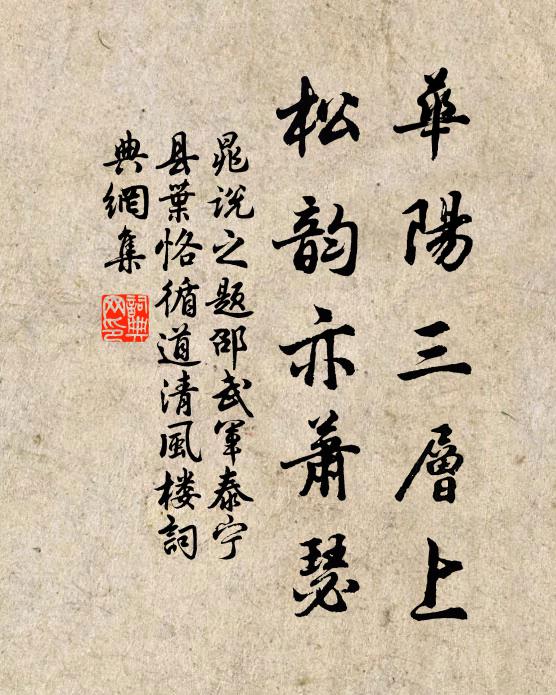 華陽三層上
松韵亦蕭瑟
晁说之题邵武军泰宁
县葉恪循道清風楼詞
典網集
詞典
网印